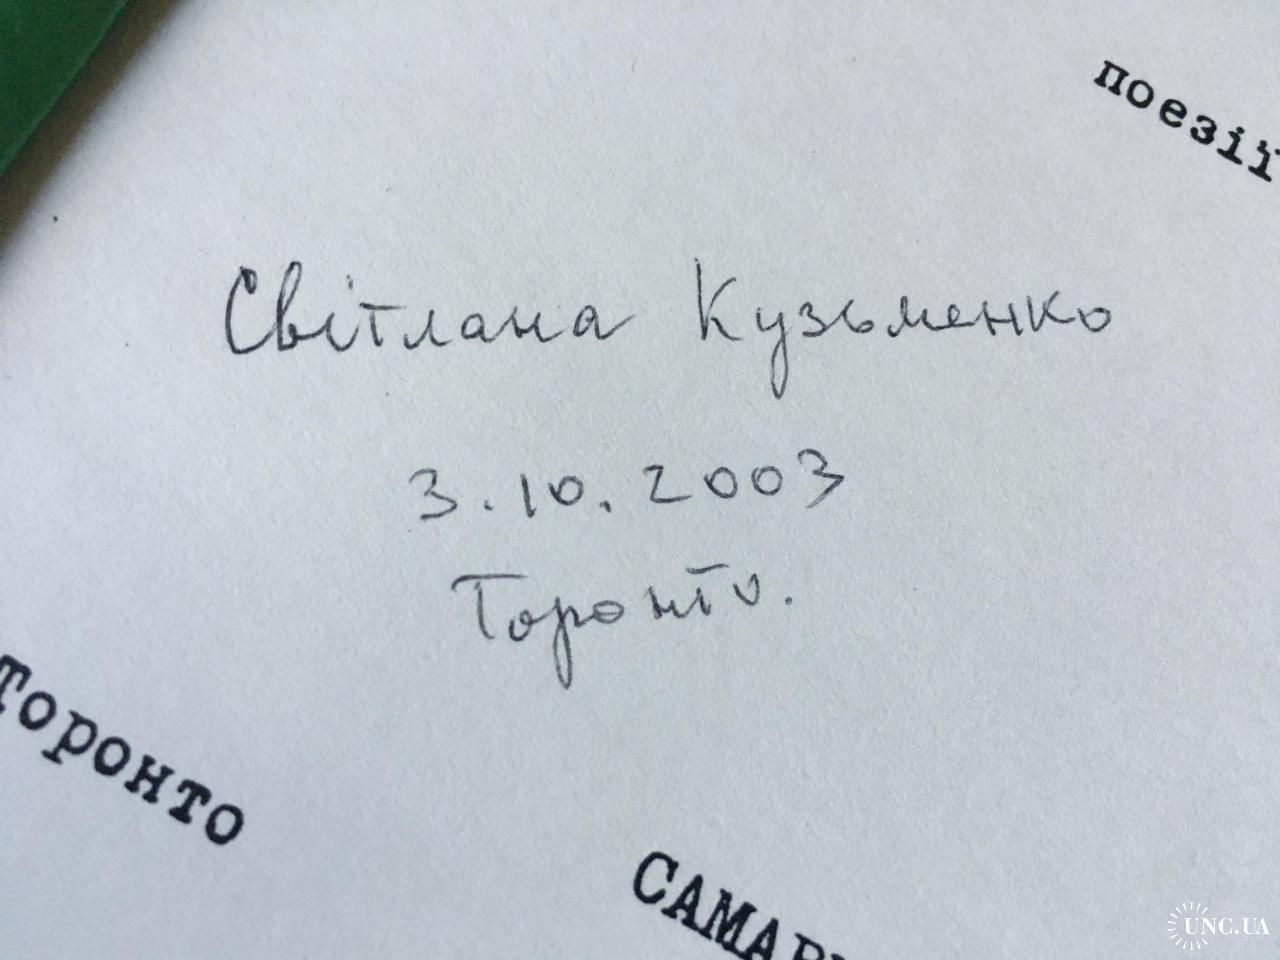 поезії
Світлана Кузьменко
3.10.2003
Торонто.
Торонто
UNC.UA